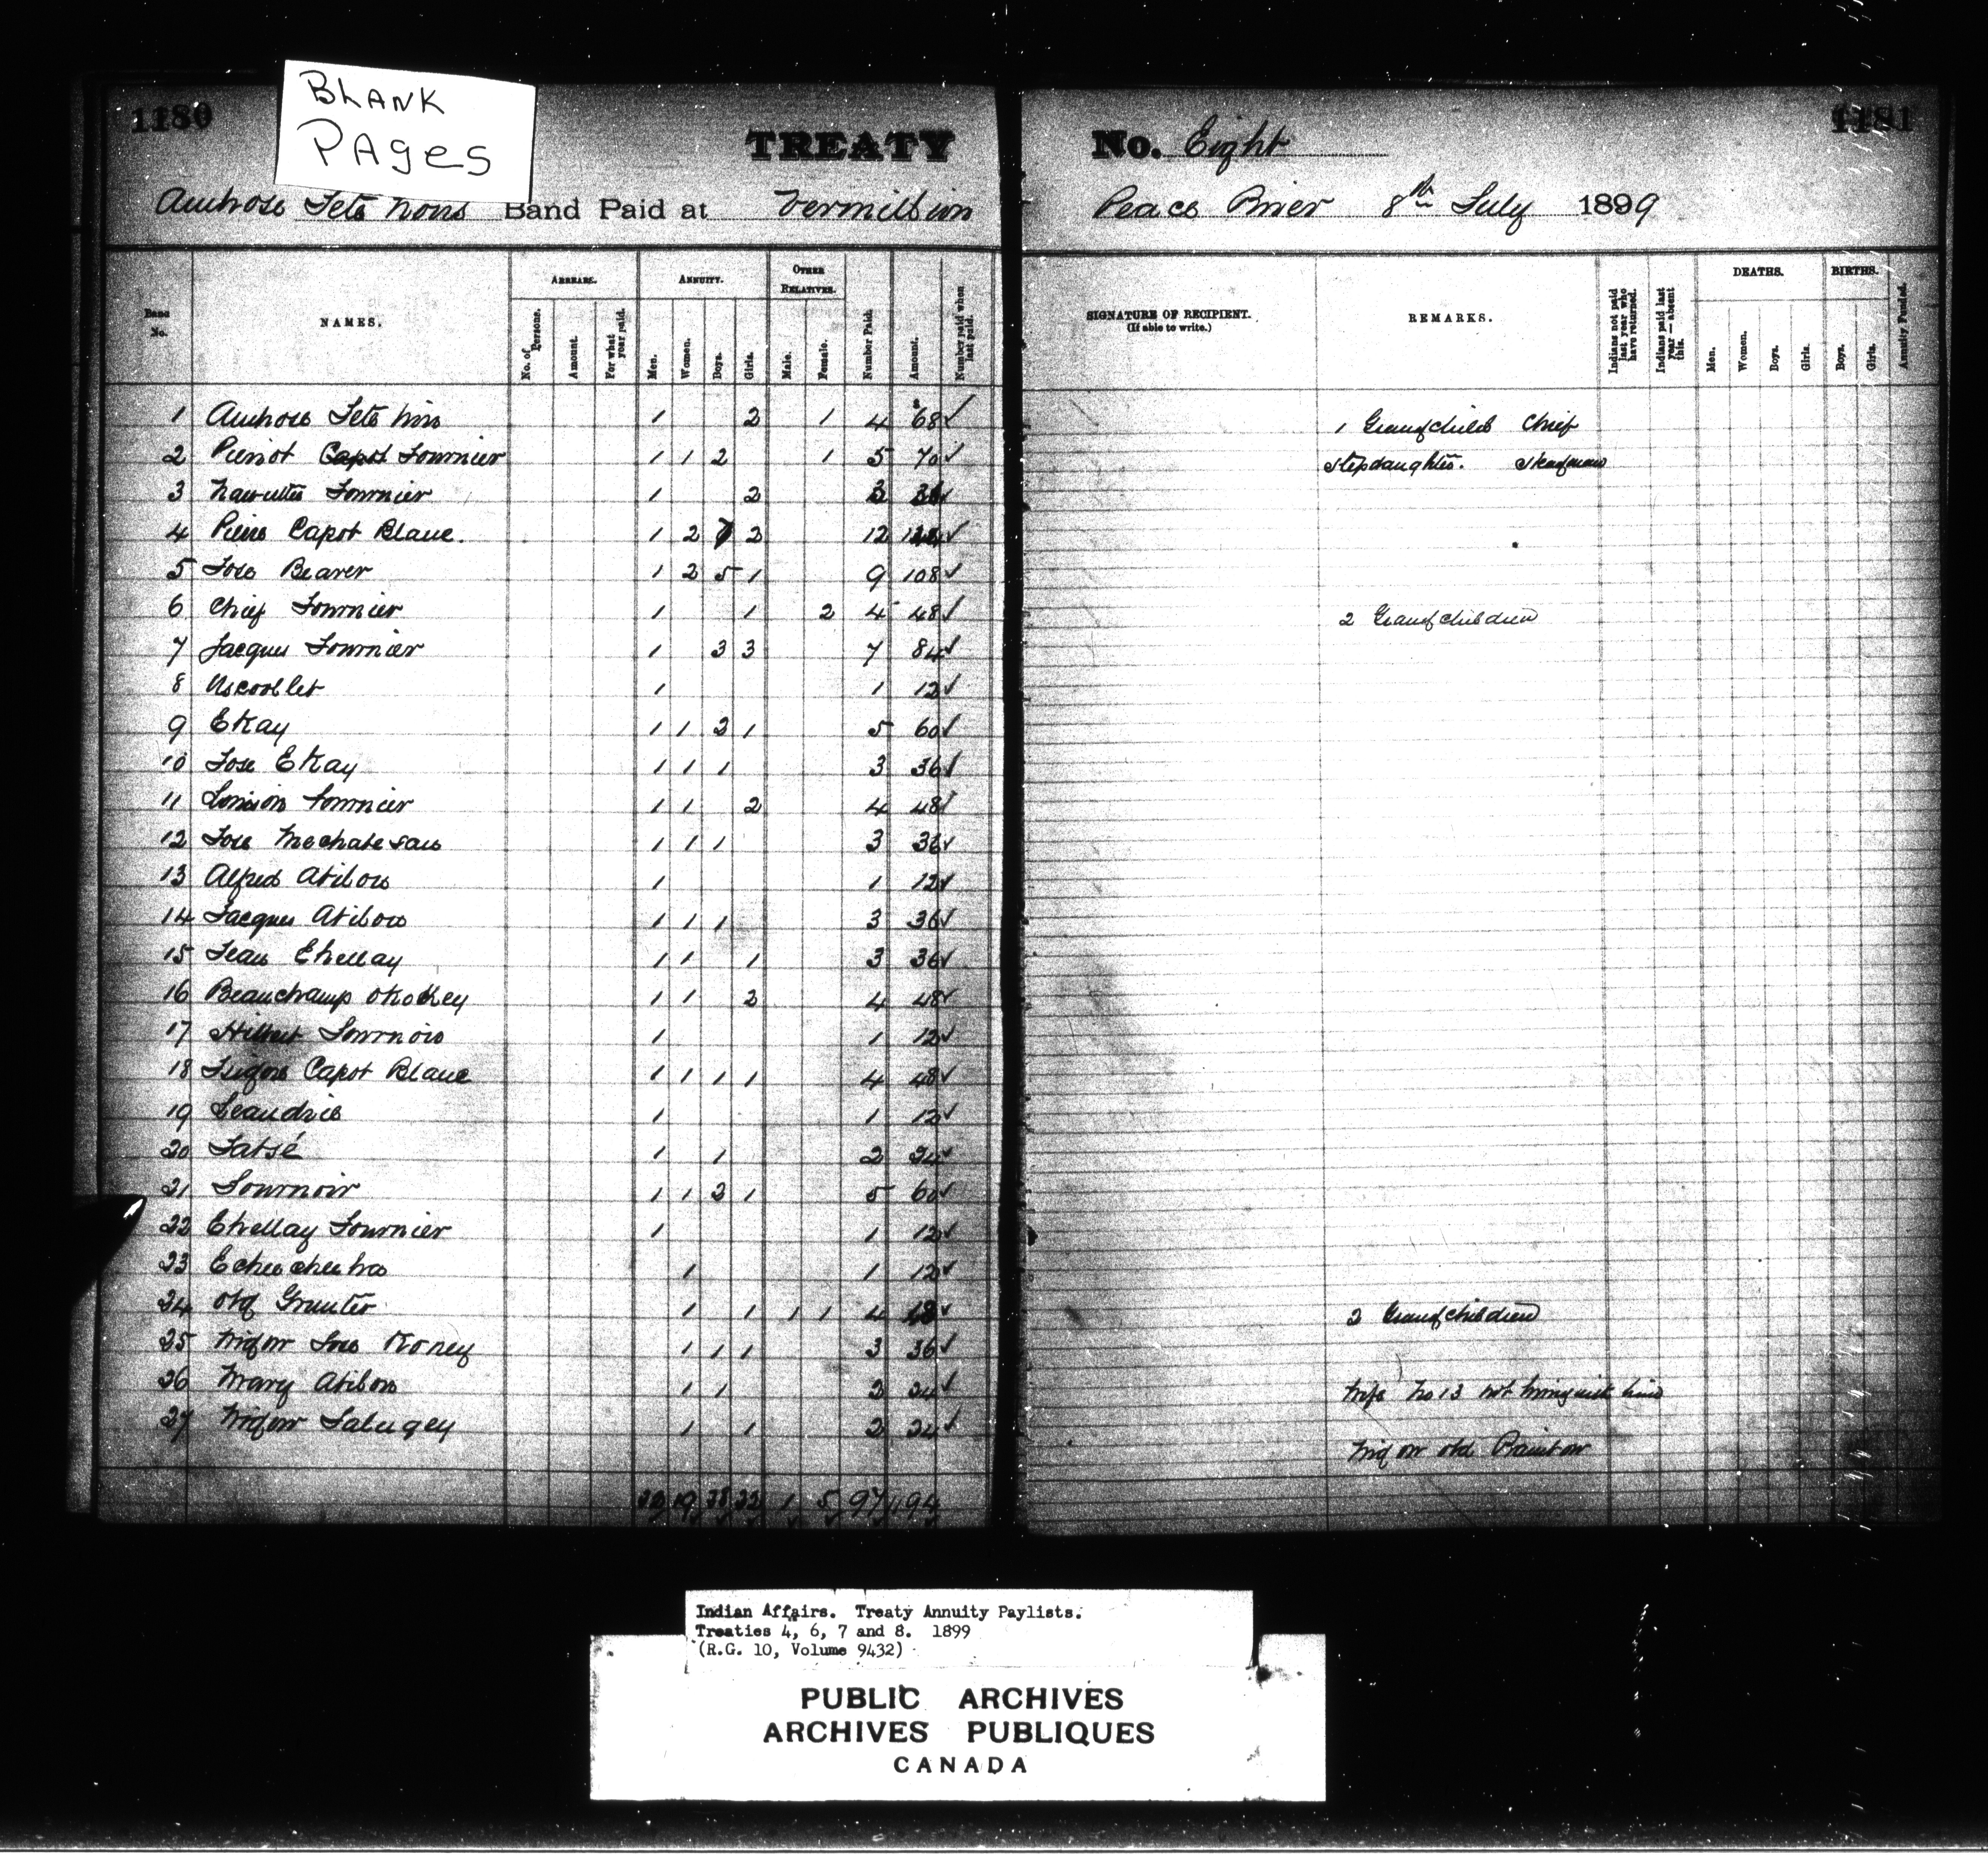 BLANK
PAGES
1180
1181
TREATY No. Eight
Ambrose Tete Noire Band Paid at Vermillion Peace River 8th July 1899
Band No.
NAMES.
ARREARS.
No. of Persons.
Amount.
For what year paid.
ANNUITY.
Men.
Women.
Boys.
Girls.
OTHER RELATIVES.
Male.
Female.
Number Paid.
Amount.
Number paid when last paid.
SIGNATURE OF RECIPIENT.
(If able to write.)
REMARKS.
Indians not paid last year who have returned.
Indians paid last year—absent this.
DEATHS.
Men.
Women.
Boys.
Girls.
BIRTHS.
Boys.
Girls.
Annuity Funded.
1 Ambrose Tete Noire 1 2 1 4 $68 ✓ 1 Grandchild Chief
2 Pierrot Capot Fournier 1 1 2 1 5 70 ✓ Stepdaughter. Headman
3 Fournier 1 2 3 36 ✓
4 Pierre Capot Blanc. 1 2 7 2 12 144 ✓
5 Jose Beaver 1 2 5 1 9 108 ✓
6 Chief Fournier 1 1 2 4 48 ✓ 2 Grandchildren
7 Jacques Fournier 1 3 3 7 84 ✓
8 1 1 12 ✓
9 Ekay 1 1 2 1 5 60 ✓
10 Jose Ekay 1 1 1 3 36 ✓
11 Fournier 1 1 2 4 48 ✓
12 Jose 1 1 1 3 36 ✓
13 Alfred Atibow 1 1 12 ✓
14 Jacques Atibow 1 1 1 3 36 ✓
15 Jean Ehellay 1 1 1 3 36 ✓
16 Beauchamp 1 1 2 4 48 ✓
17 1 1 12 ✓
18 Capot Blanc 1 1 1 1 4 48 ✓
19 Leandrie 1 1 12 ✓
20 Tatsé 1 1 2 24 ✓
21 Tournoir 1 1 2 1 5 60 ✓
22 Ehellay Fournier 1 1 12 ✓
23 1 1 12 ✓
24 Old 1 1 1 1 4 48 ✓ 2 Grandchildren
25 Widow Jose Koney 1 1 1 3 36 ✓
26 Mary Atibow 1 1 2 24 ✓ Wife No 13 not living with him
27 Widow 1 1 2 24 ✓
Widow old
19 1 5 97 1194
Indian Affairs. Treaty Annuity Paylists.
Treaties 4, 6, 7 and 8. 1899
(R.G. 10, Volume 9432)
PUBLIC ARCHIVES
ARCHIVES PUBLIQUES
CANADA